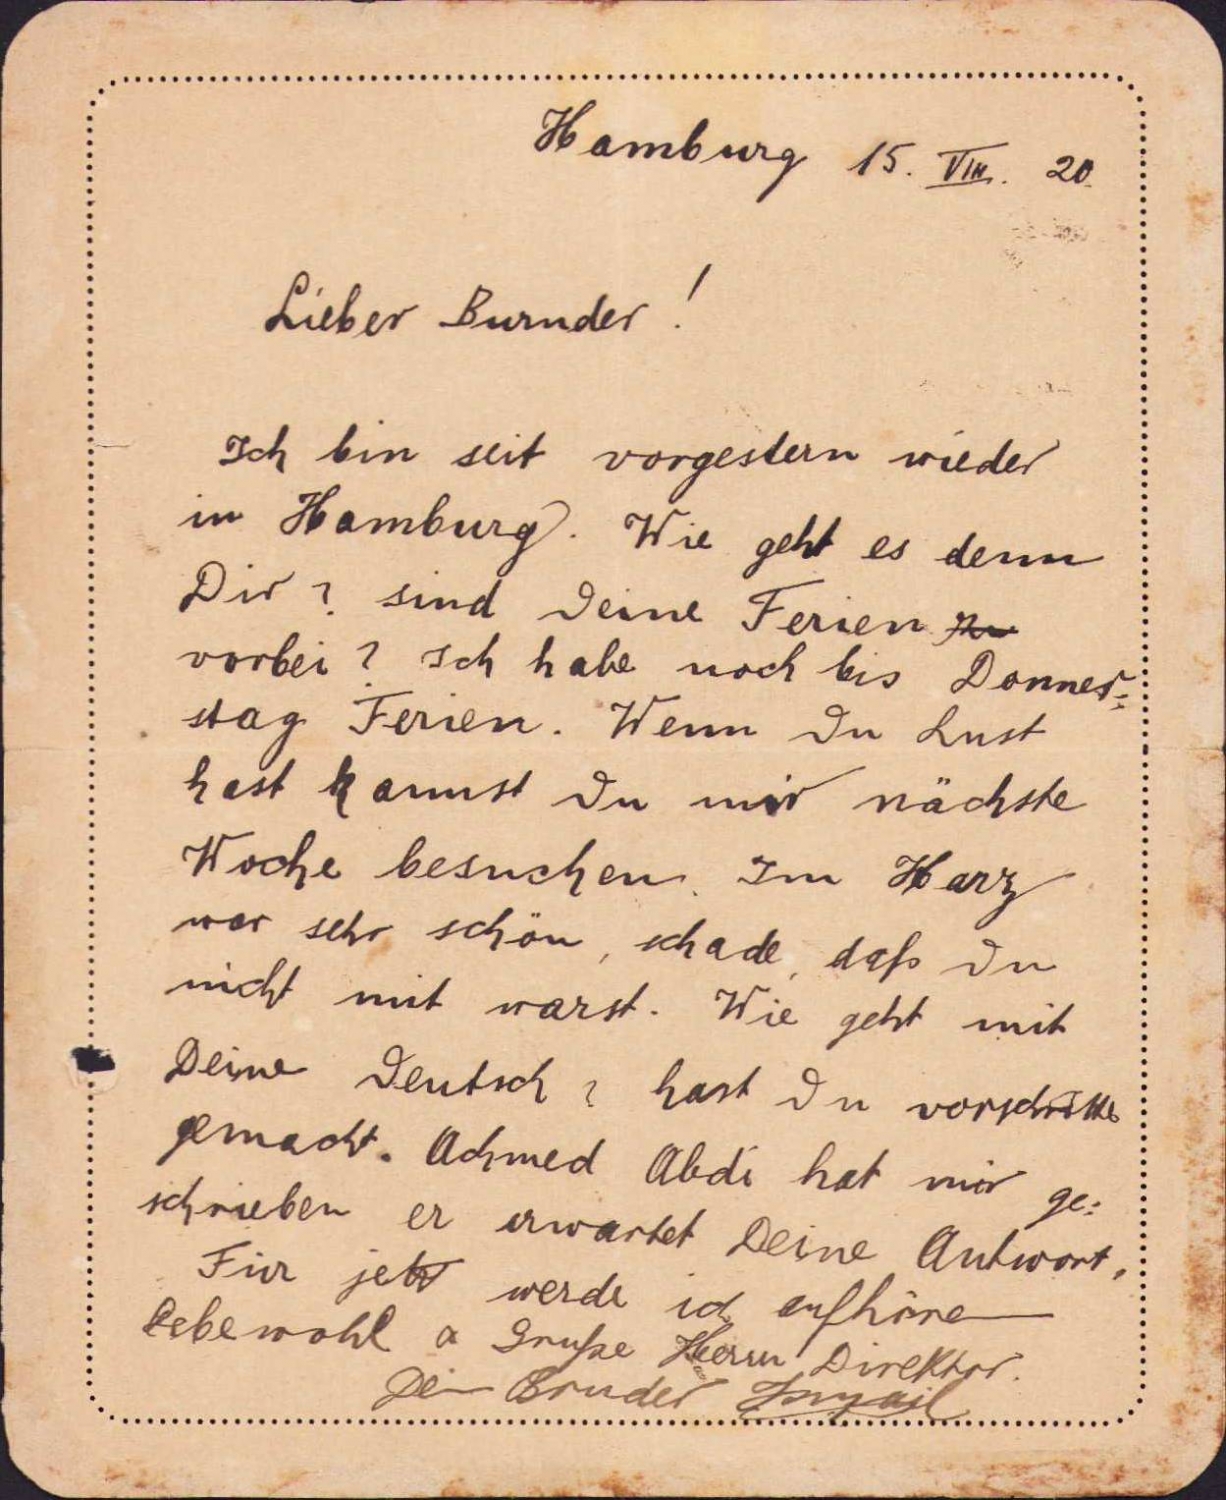 Hamburg 15. VIII. 20.
Lieber Burnder !
Ich bin seit vorgestern wieder
in Hamburg. Wie geht es denn
Dir ? sind Deine Ferien
vorbei ? Ich habe noch bis Donner=
stag Ferien. Wenn Du Lust
hast kannst Du mir nächste
Woche besuchen. Im Harz
war sehr schön, schade, daß Du
nicht mit warst. Wie geht mit
Deine Deutsch ? hast Du vorschritte
gemacht. Achmed Abdi hat mir ge=
schrieben er erwartet Deine Antwort.
Für jetzt werde ich aufhöre
Lebewohl u Gruße Herrn Direktor.
Dein Bruder Ismail